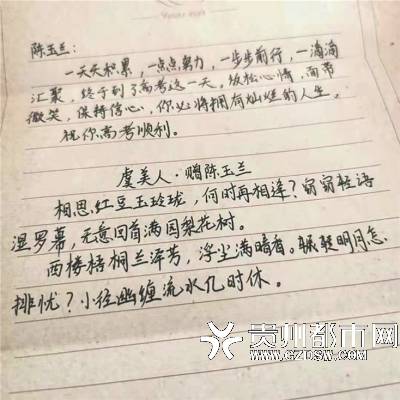 陈玉兰：
一天天积累，一点点努力，一步步前行，一滴滴
汇聚，终于到了高考这一天，放松心情，面带
微笑，保持信心，你必将拥有灿烂的人生。
祝你高考顺利。
虞美人·赠陈玉兰
相思红豆玉玲珑，何时再相逢？窃窃轻语
湿罗幕，无意回首满园梨花树。
西楼梧桐兰泽芳，浮尘满暗香。皎皎明月怎
排忧？小径幽缠流水几时休。
贵州都市网
WWW.GZDSW.COM